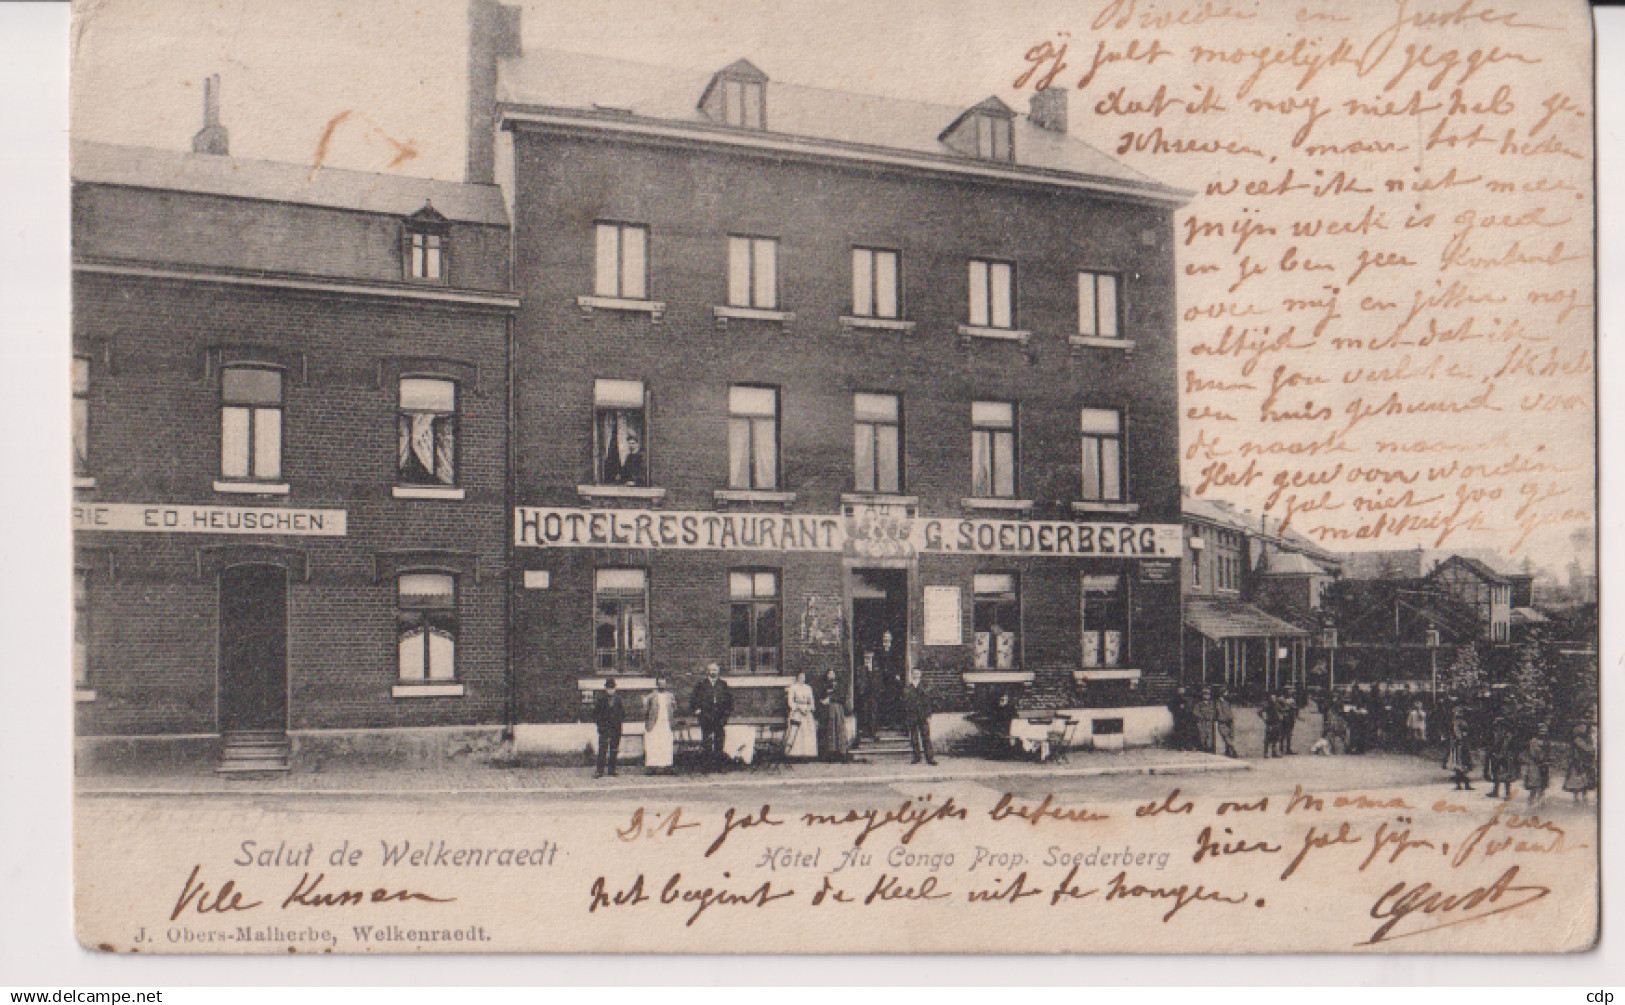 Broeder en Zuster
Gij zult mogelijk zeggen
dat ik nog niet heb ge-
schreven, maar tot heden
weet ik niet meer
mijn werk is goed
en ze ben zeer kontent
over mij en zitten nog
altijd met dat ik
hun zou verlaten, Ik heb
een huis gehuurd voor
de naaste maand.
Het gewoon worden
zal niet zoo ge
makkelijk gaan
RIE ED. HEUSCHEN
AU
HOTEL-RESTAURANT G. SOEDERBERG.
Dit zal mogelijks beteren als ons Mama en
hier zal zijn, want
Salut de Welkenraedt
Hôtel Au Congo Prop. Soederberg
Vele Kussen
het begint de Keel uit te hangen.
J. Obers-Malherbe, Welkenraedt.
cdp